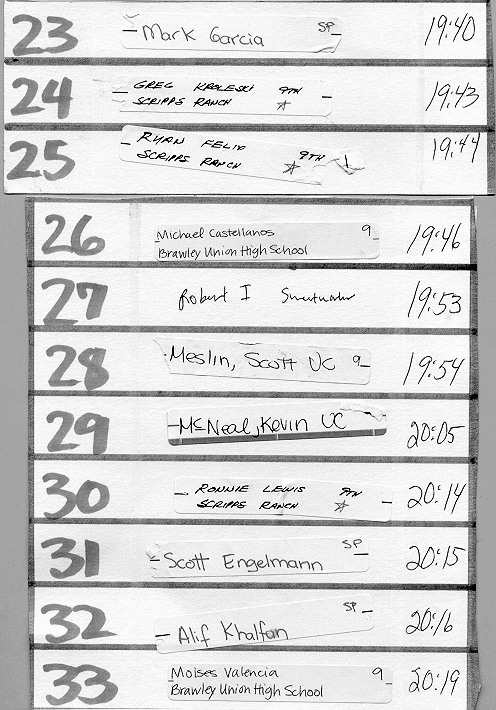 23 Mark Garcia SP 19:40
24 GREG KROLESKI 9TH 19:43
SCRIPPS RANCH ☆
25 RYAN FELIX 9TH 19:44
SCRIPPS RANCH ☆
26 Michael Castellanos 9 19:46
Brawley Union High School
27 Robert I Sweetwater 19:53
28 Meslin, Scott UC 9 19:54
29 McNeal, Kevin UC 20:05
30 RONNIE LEWIS 9TH 20:14
SCRIPPS RANCH ☆
31 Scott Engelmann SP 20:15
32 Alif Khalfan SP 20:16
33 Moises Valencia 9 20:19
Brawley Union High School